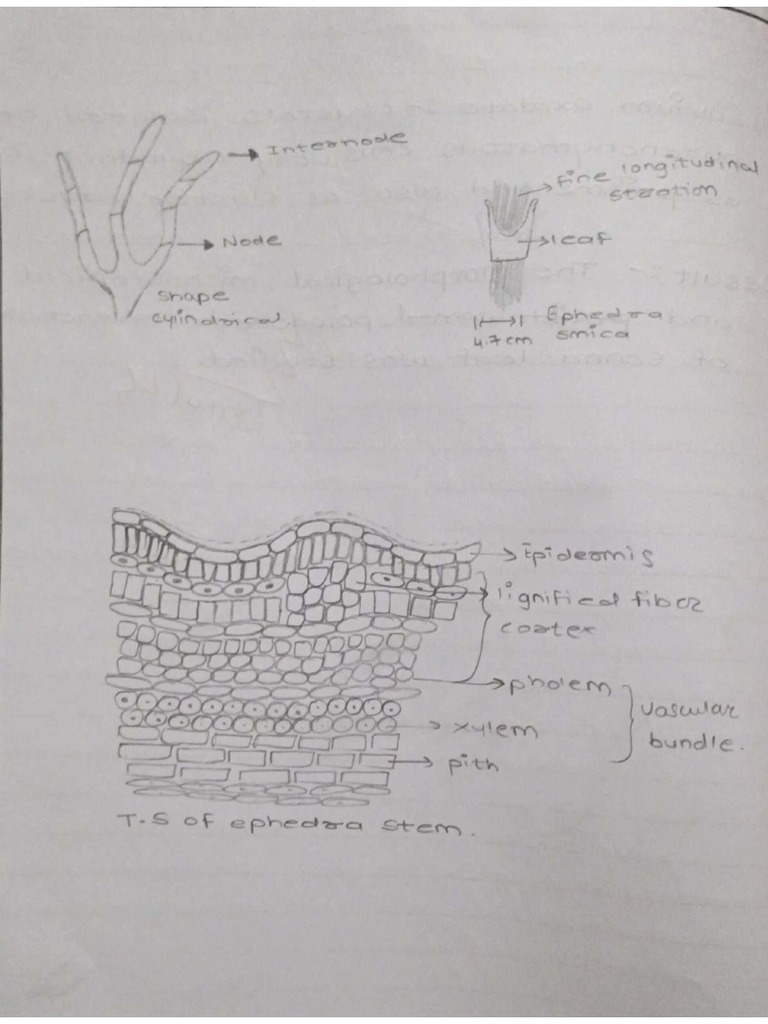 Internode
Node
Shape
cylindrical.
Fine longitudinal
stration
leaf
4.7 cm
Ephedra
smica
Epidermis
lignified fiber
cortex
pholem
xylem
vascular
bundle.
pith
T.S of ephedra stem.